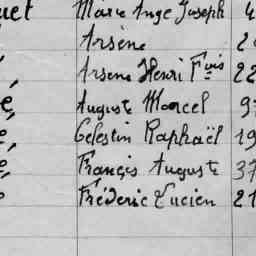 uet Marie Ange Joseph 4
Arsène 2
Arsene Henri Fois 22
é Auguste Marcel 97
é Celestin Raphaël 19
é Français Auguste 37
é Fréderic Lucien 21